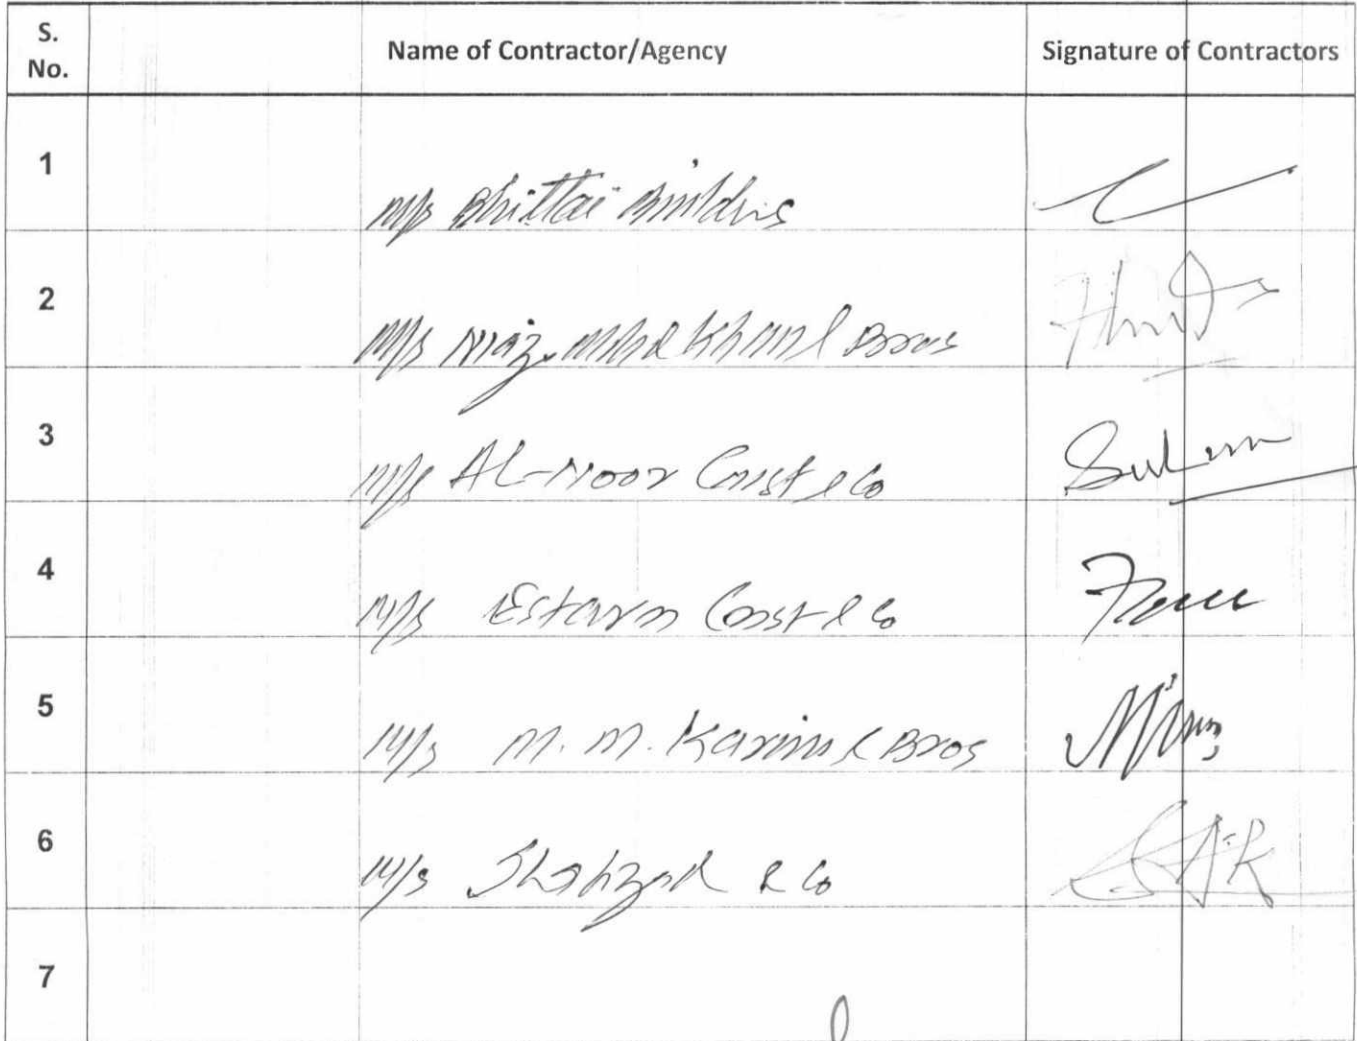 S. No. Name of Contractor/Agency Signature of Contractors
1 M/s Bhittai Builders
2 M/s Niaz Mhd Khan & Bros
3 M/s AL-Noor Const & Co
4 M/s Estarn Const & Co
5 M/s M. M. Karim & Bros
6 M/s Shahzad & Co
7